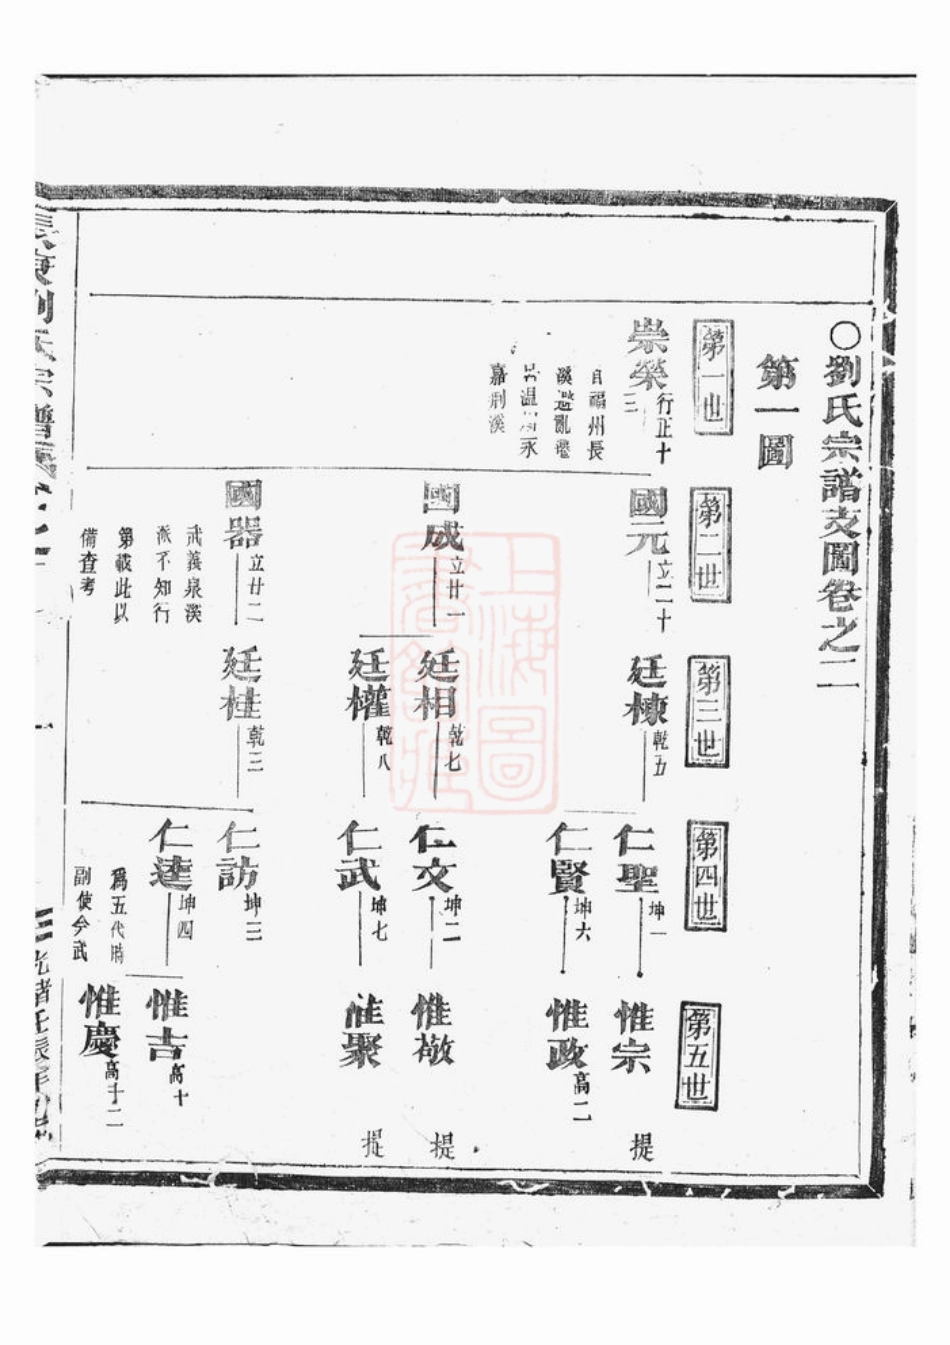 〇劉氏宗譜支圖卷之二
第一圖
第一世
第二世
第三世
第四世
第五世
崇榮
行正十三
自福州長
溪避亂遷
居温州永
嘉荆溪
國元
立二十
廷棟
乾五
仁聖
坤一
惟宗
提
仁賢
坤六
惟政
高二
國成
立廿一
廷相
乾七
仁文
坤二
惟敬
提
廷權
乾八
仁武
坤七
惟聚
提
國器
立廿二
武義泉溪
派不知行
第載此以
備查考
廷桂
乾三
仁訪
坤三
仁逵
坤四
爲五代時
副使今武
惟吉
高十
惟慶
高十二
劉氏宗譜
光緒壬辰年
上海圖書館藏